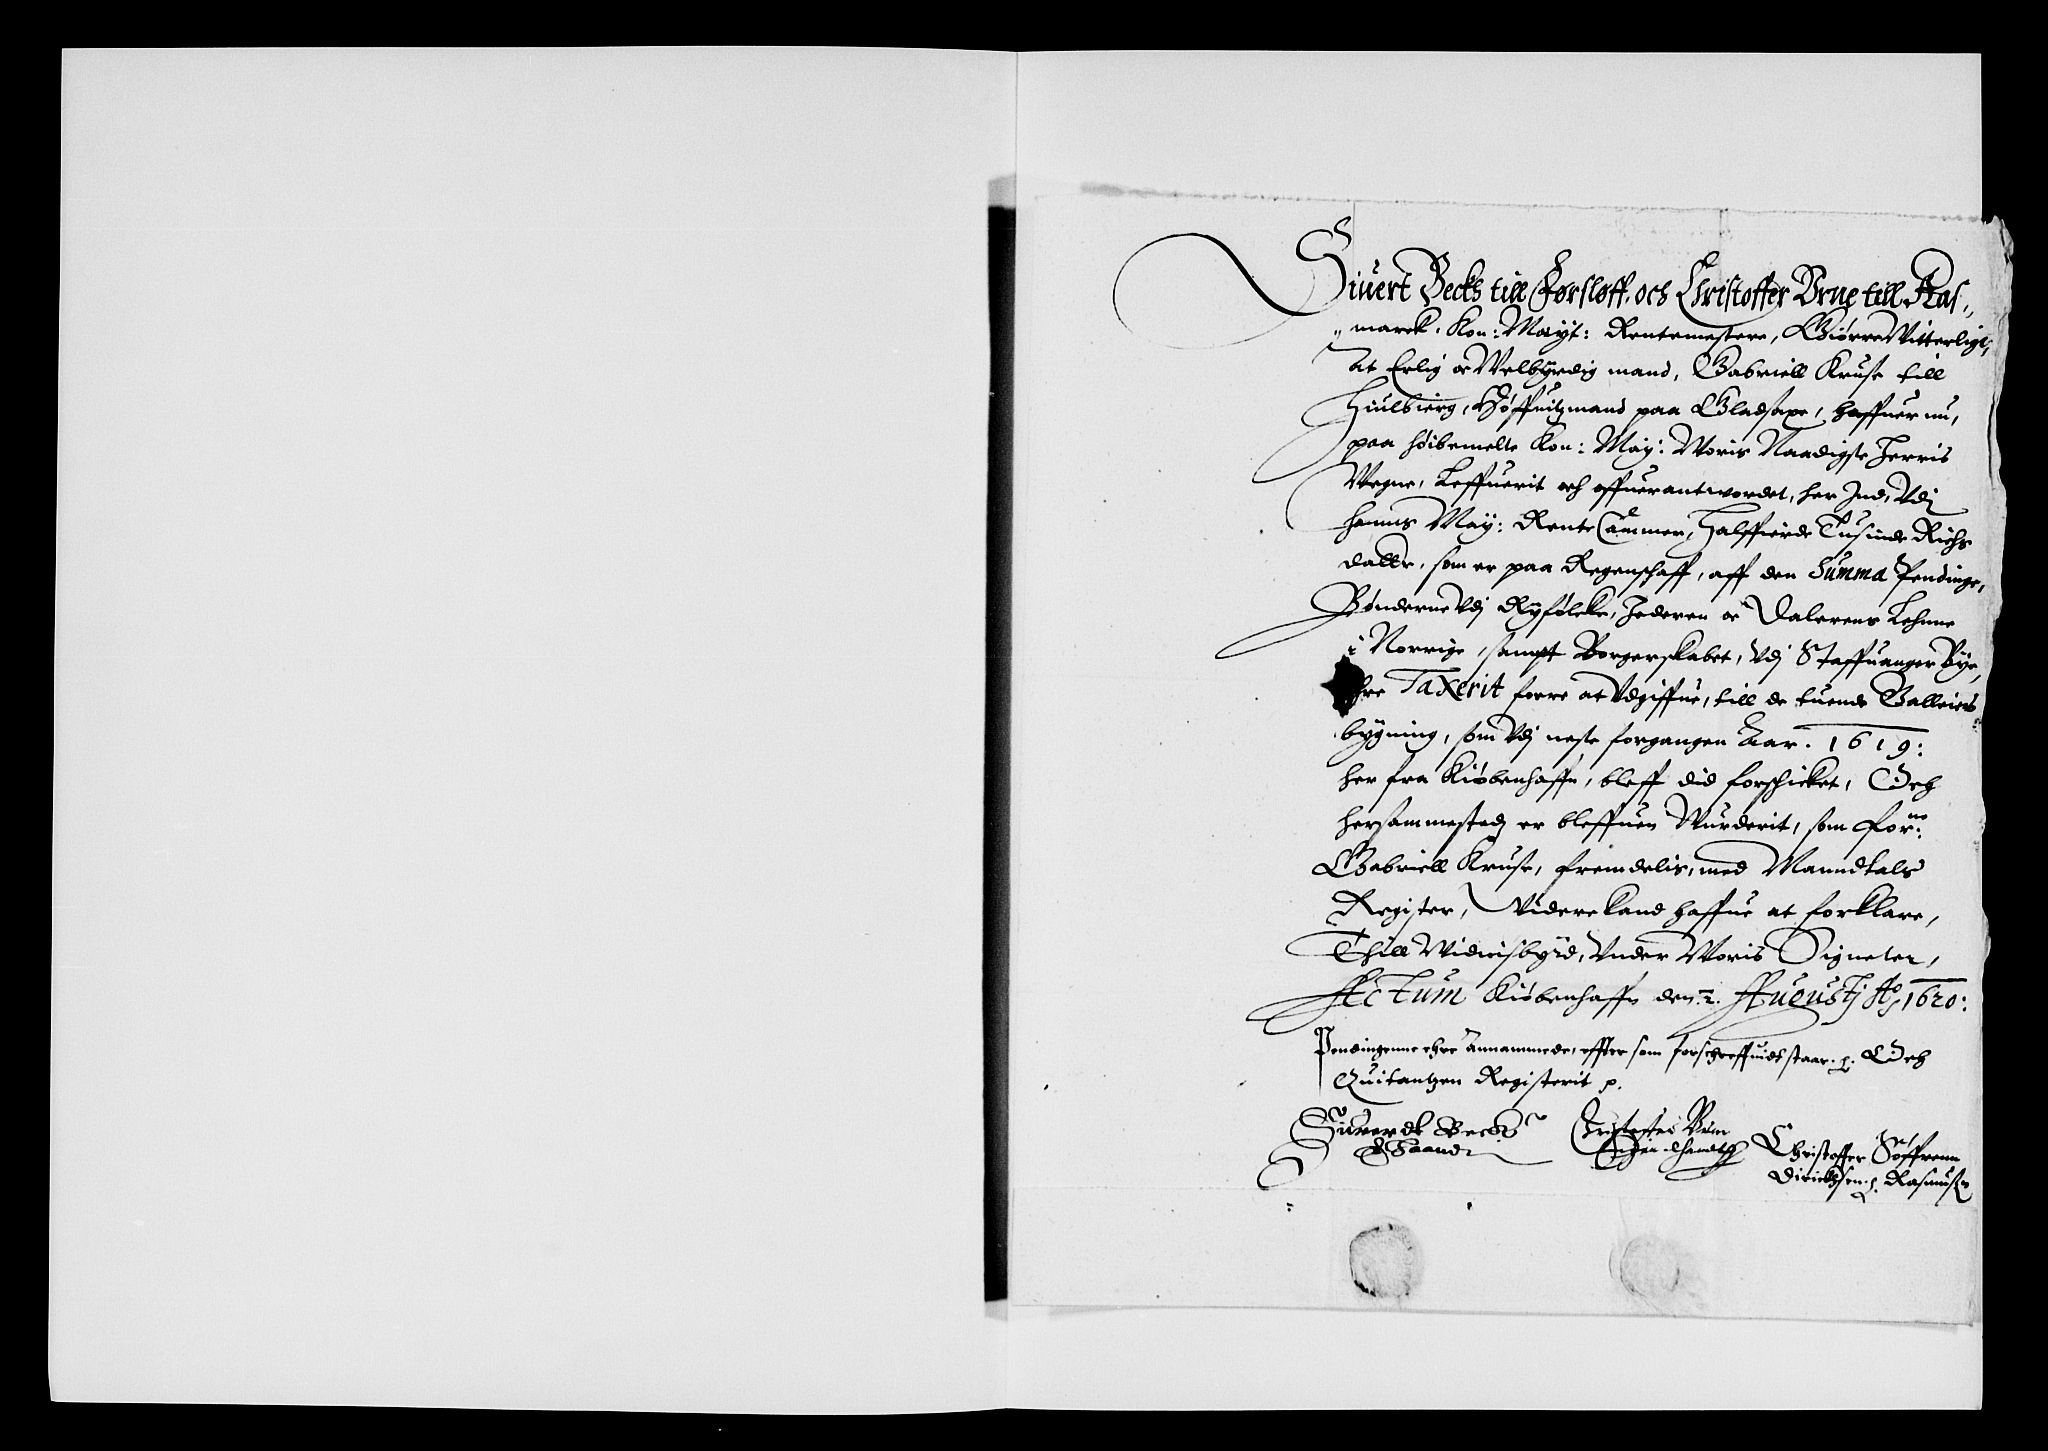 Siuert Beck till Førsløff, och Christoffer Vrne till Aas„
„ marck, Kon: Mayt: Rentemestere, Giørre Witterligt,
At Erlig oc Welbyrdig mand, Gabriell Kruse till
Hiulbierg, Høffuitzmand paa Gladsaxe, haffuer nu,
paa høibemelte Kon: May: Woris Naadigste Herris
Wegne, Leffuerit och offuerantwordet, her Ind, Vdj
hanns May: Rente Cammer, Halffierde Tusinde Richs
daller, som er paa Regenschaff, aff den Summa Pendinge,
Bønderne Vdj Ryføleke, Jederen oc Dalerens Lehnne
i Norrige, sampt Borgerskabet, Vdj Staffuanger Bye,
ehre Taxerit forre at Vdgiffue, till de tuende Galleiers
bygning, som Vdj neste forgangen Aar. 1619:
her fra Kiøbenhaffn, bleff did forschicket, Och
hersammestedz er bleffuen Wurderit, som forne:
Gabriell Kruse, fremdelis, med Manndtals
Register, Videre kand haffue at forklare,
Thill Widnisbyrd, Vnder Woris Signeter,
Actum Kiøbenhaffn den 2. Augustj Ao 1620:
Pendingenne ehre Annammede, effter som forschreffuidt staar. p. Och
Quitantzen Registerit p.
Siuerdt Beck
E Haand
Christoffer Vrne
Egen Handt
Christoffer Søffrenn
Dirichsen. p. Rasmusen